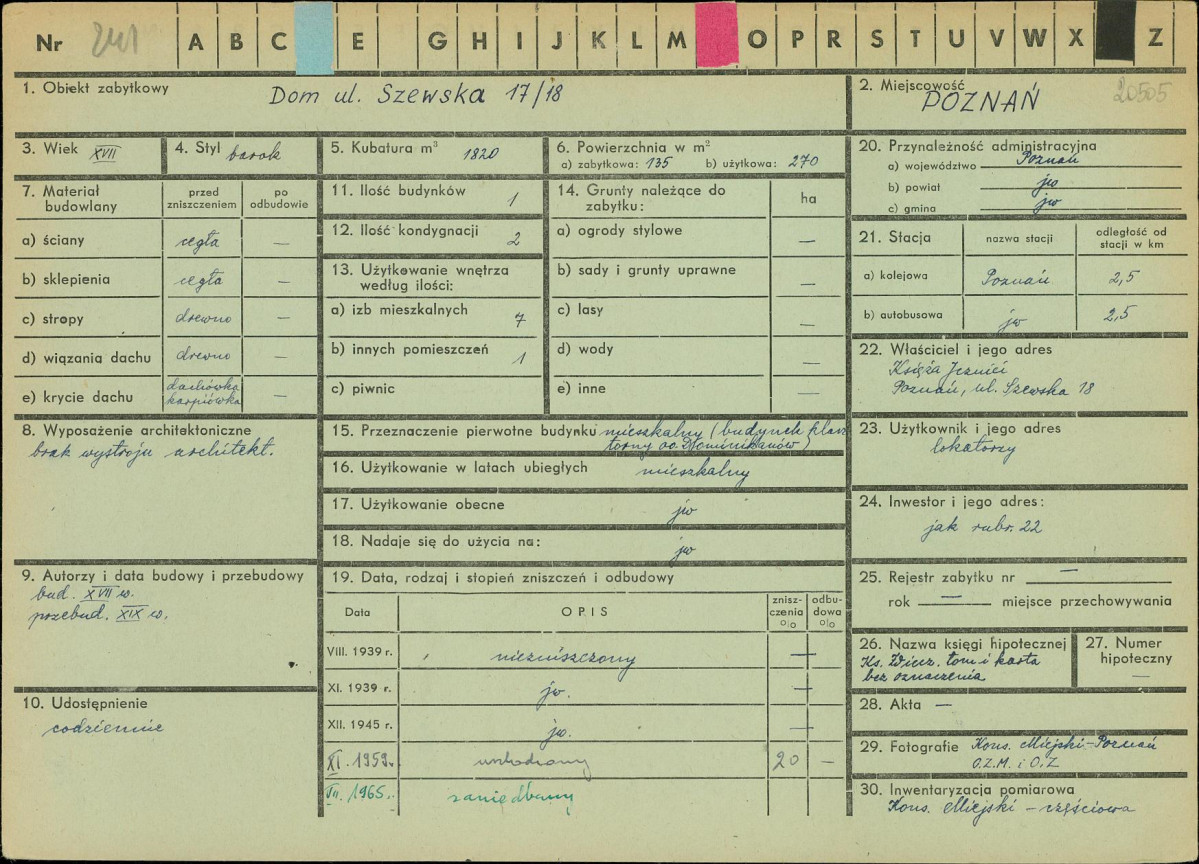 Nr 241 A B C E G H I J K L M O P R S T U V W X Z
1. Obiekt zabytkowy Dom ul. Szewska 17/18
2. Miejscowość POZNAŃ 20505
3. Wiek XVII
4. Styl barok
5. Kubatura m³ 1820
6. Powierzchnia w m²
a) zabytkowa: 135 b) użytkowa: 270
7. Materiał budowlany
przed zniszczeniem
po odbudowie
a) ściany cegła —
b) sklepienia cegła —
c) stropy drewno —
d) wiązania dachu drewno —
e) krycie dachu dachówka karpiówka —
8. Wyposażenie architektoniczne
brak wystroju architekt.
9. Autorzy i data budowy i przebudowy
bud. XVII w.
przebud. XIX w.
10. Udostępnienie
codziennie
11. Ilość budynków 1
12. Ilość kondygnacji 2
13. Użytkowanie wnętrza
według ilości:
a) izb mieszkalnych 7
b) innych pomieszczeń 1
c) piwnic
14. Grunty należące do
zabytku: ha
a) ogrody stylowe —
b) sady i grunty uprawne —
c) lasy —
d) wody —
e) inne —
15. Przeznaczenie pierwotne budynku mieszkalny (budynek klasz
torny oo Dominikanów)
16. Użytkowanie w latach ubiegłych mieszkalny
17. Użytkowanie obecne jw
18. Nadaje się do użycia na: jw
19. Data, rodzaj i stopień zniszczeń i odbudowy
Data OPIS znisz-
czenia
o|o odbu-
dowa
o|o
VIII. 1939 r. niezniszczony —
XI. 1939 r. jw. —
XII. 1945 r. jw. —
XI. 1959r. uszkodzony 20 —
VII. 1965. zaniedbany
20. Przynależność administracyjna
a) województwo Poznań
b) powiat jw
c) gmina jw
21. Stacja nazwa stacji odległość od
stacji w km
a) kolejowa Poznań 2,5
b) autobusowa jw 2,5
22. Właściciel i jego adres
Księża Jezuici
Poznań, ul. Szewska 18
23. Użytkownik i jego adres
lokatorzy
24. Inwestor i jego adres:
jak rubr. 22
25. Rejestr zabytku nr —
rok — miejsce przechowywania
26. Nazwa księgi hipotecznej
Ks. Wiecz. tom i karta
bez oznaczenia
27. Numer
hipoteczny
—
28. Akta —
29. Fotografie Kons. Miejski - Poznań
O.Z.M. i O.Z
30. Inwentaryzacja pomiarowa
Kons. Miejski - częściowa